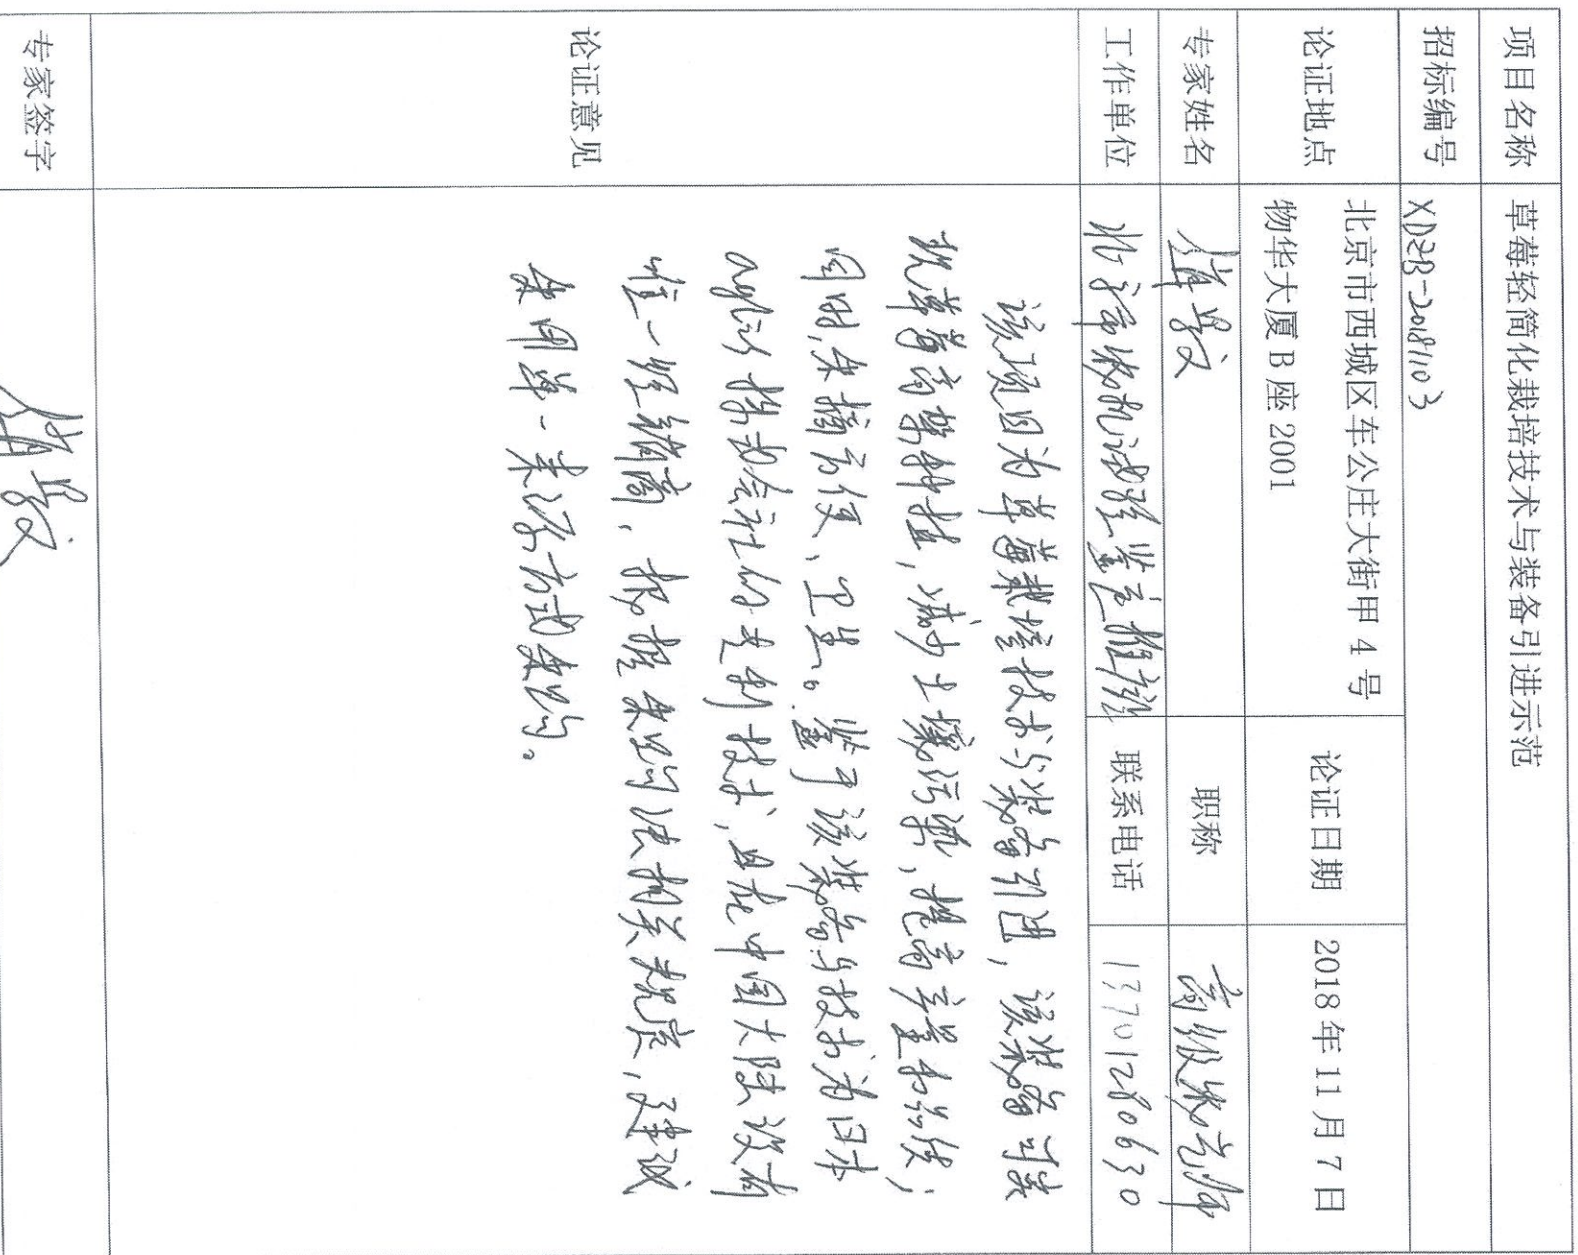 项目名称 草莓轻简化栽培技术与装备引进示范
招标编号 XDZB-20181103
论证地点 北京市西城区车公庄大街甲 4 号
物华大厦 B 座 2001
论证日期 2018 年 11 月 7 日
专家姓名
职称 高级农艺师
工作单位 北京市农机试验鉴定推广站
联系电话 13701280630
论证意见
该项目为草莓栽培技术与装备引进，该装备可实
现草莓高架种植，减少土壤污染，提高产量和品质；
同时，采摘方便、卫生。鉴于该装备与技术为日本
株式会社的专利技术，且在中国大陆设有
唯一经销商，根据采购法相关规定，建议
采用单一来源方式采购。
专家签字